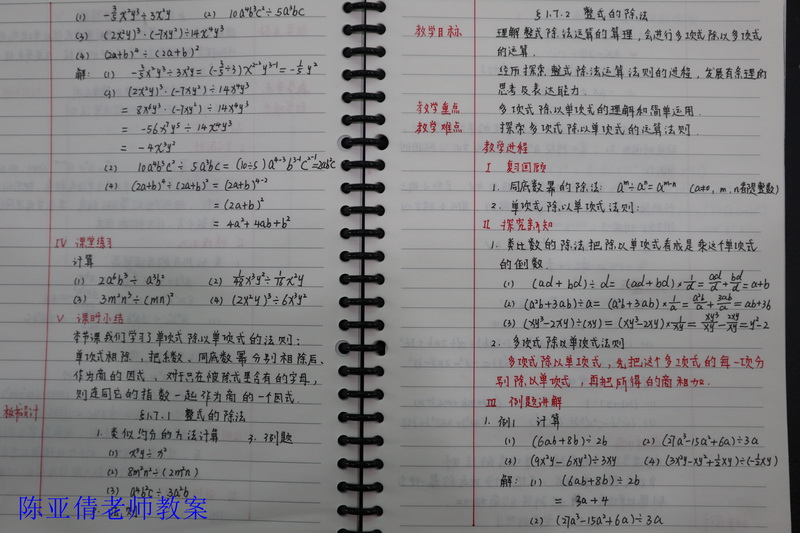 (1) -3/5x²y³÷3x²y (2) 10a⁴b³c²÷5a³bc
(3) (2x²y)³·(-7xy²)÷14x⁴y³
(4) (2a+b)⁴÷(2a+b)²
解: (1) -3/5x²y³÷3x²y = (-3/5÷3)x²⁻²y³⁻¹ = -1/5y²
= 8x⁶y³·(-7xy²)÷14x⁴y³
= -56x⁷y⁵÷14x⁴y³
= -4x³y²
(2) 10a⁴b³c²÷5a³bc = (10÷5)a⁴⁻³b³⁻¹c²⁻¹=2ab²c
(4) (2a+b)⁴÷(2a+b)² = (2a+b)⁴⁻²
= (2a+b)²
= 4a²+4ab+b²
Ⅳ 课堂练习
计算
(1) 2a⁶b³÷a³b² (2) 1/48x³y²÷1/16x²y
(3) 3m²n³÷(mn)² (4) (2x²y)³÷6x³y²
Ⅴ 课时小结
本节课我们学习了单项式除以单项式的法则:
单项式相除,把系数、同底数幂分别相除后,
作为商的因式,对于只在被除式里含有的字母,
则连同它的指数一起作为商的一个因式.
板书设计
§1.7.1 整式的除法
1. 类似约分的方法计算 3. 例题
(1) x⁵y÷x²
(2) 8m²n²÷(2m²n)
(3) a⁴b²c÷3a²b
陈亚倩老师教案
§1.7.2 整式的除法
教学目标 理解整式除法运算的算理,会进行多项式除以多项式
的运算.
经历探索整式除法运算法则的过程,发展有条理的
思考及表达能力.
教学重点 多项式除以单项式的理解和简单运用.
教学难点 探索多项式除以单项式的运算法则.
教学进程
Ⅰ 复习回顾
1. 同底数幂的除法: aᵐ÷aⁿ=aᵐ⁻ⁿ (a≠0, m、n都是整数)
2. 单项式除以单项式法则:
Ⅱ 探究新知
1. 类比数的除法把除以单项式看成是乘这个单项式
的倒数.
(1) (ad+bd)÷d = (ad+bd)×1/d = ad/d+bd/d=a+b
(2) (a²b+3ab)÷a = (a²b+3ab)×1/a = a²b/a+3ab/a=ab+3b
(3) (xy³-2xy)÷(xy) = (xy³-2xy)×1/xy = xy³/xy-2xy/xy=y²-2
2. 多项式除以单项式法则
多项式除以单项式,先把这个多项式的每一项分
别除以单项式,再把所得的商相加.
Ⅲ 例题讲解
1. 例1 计算
(1) (6ab+8b)÷2b (2) (27a³-15a²+6a)÷3a
(3) (9x²y-6xy²)÷3xy (4) (3x²y-xy²+1/2xy)÷(-1/2xy)
解: (1) (6ab+8b)÷2b
= 3a+4
(2) (27a³-15a²+6a)÷3a